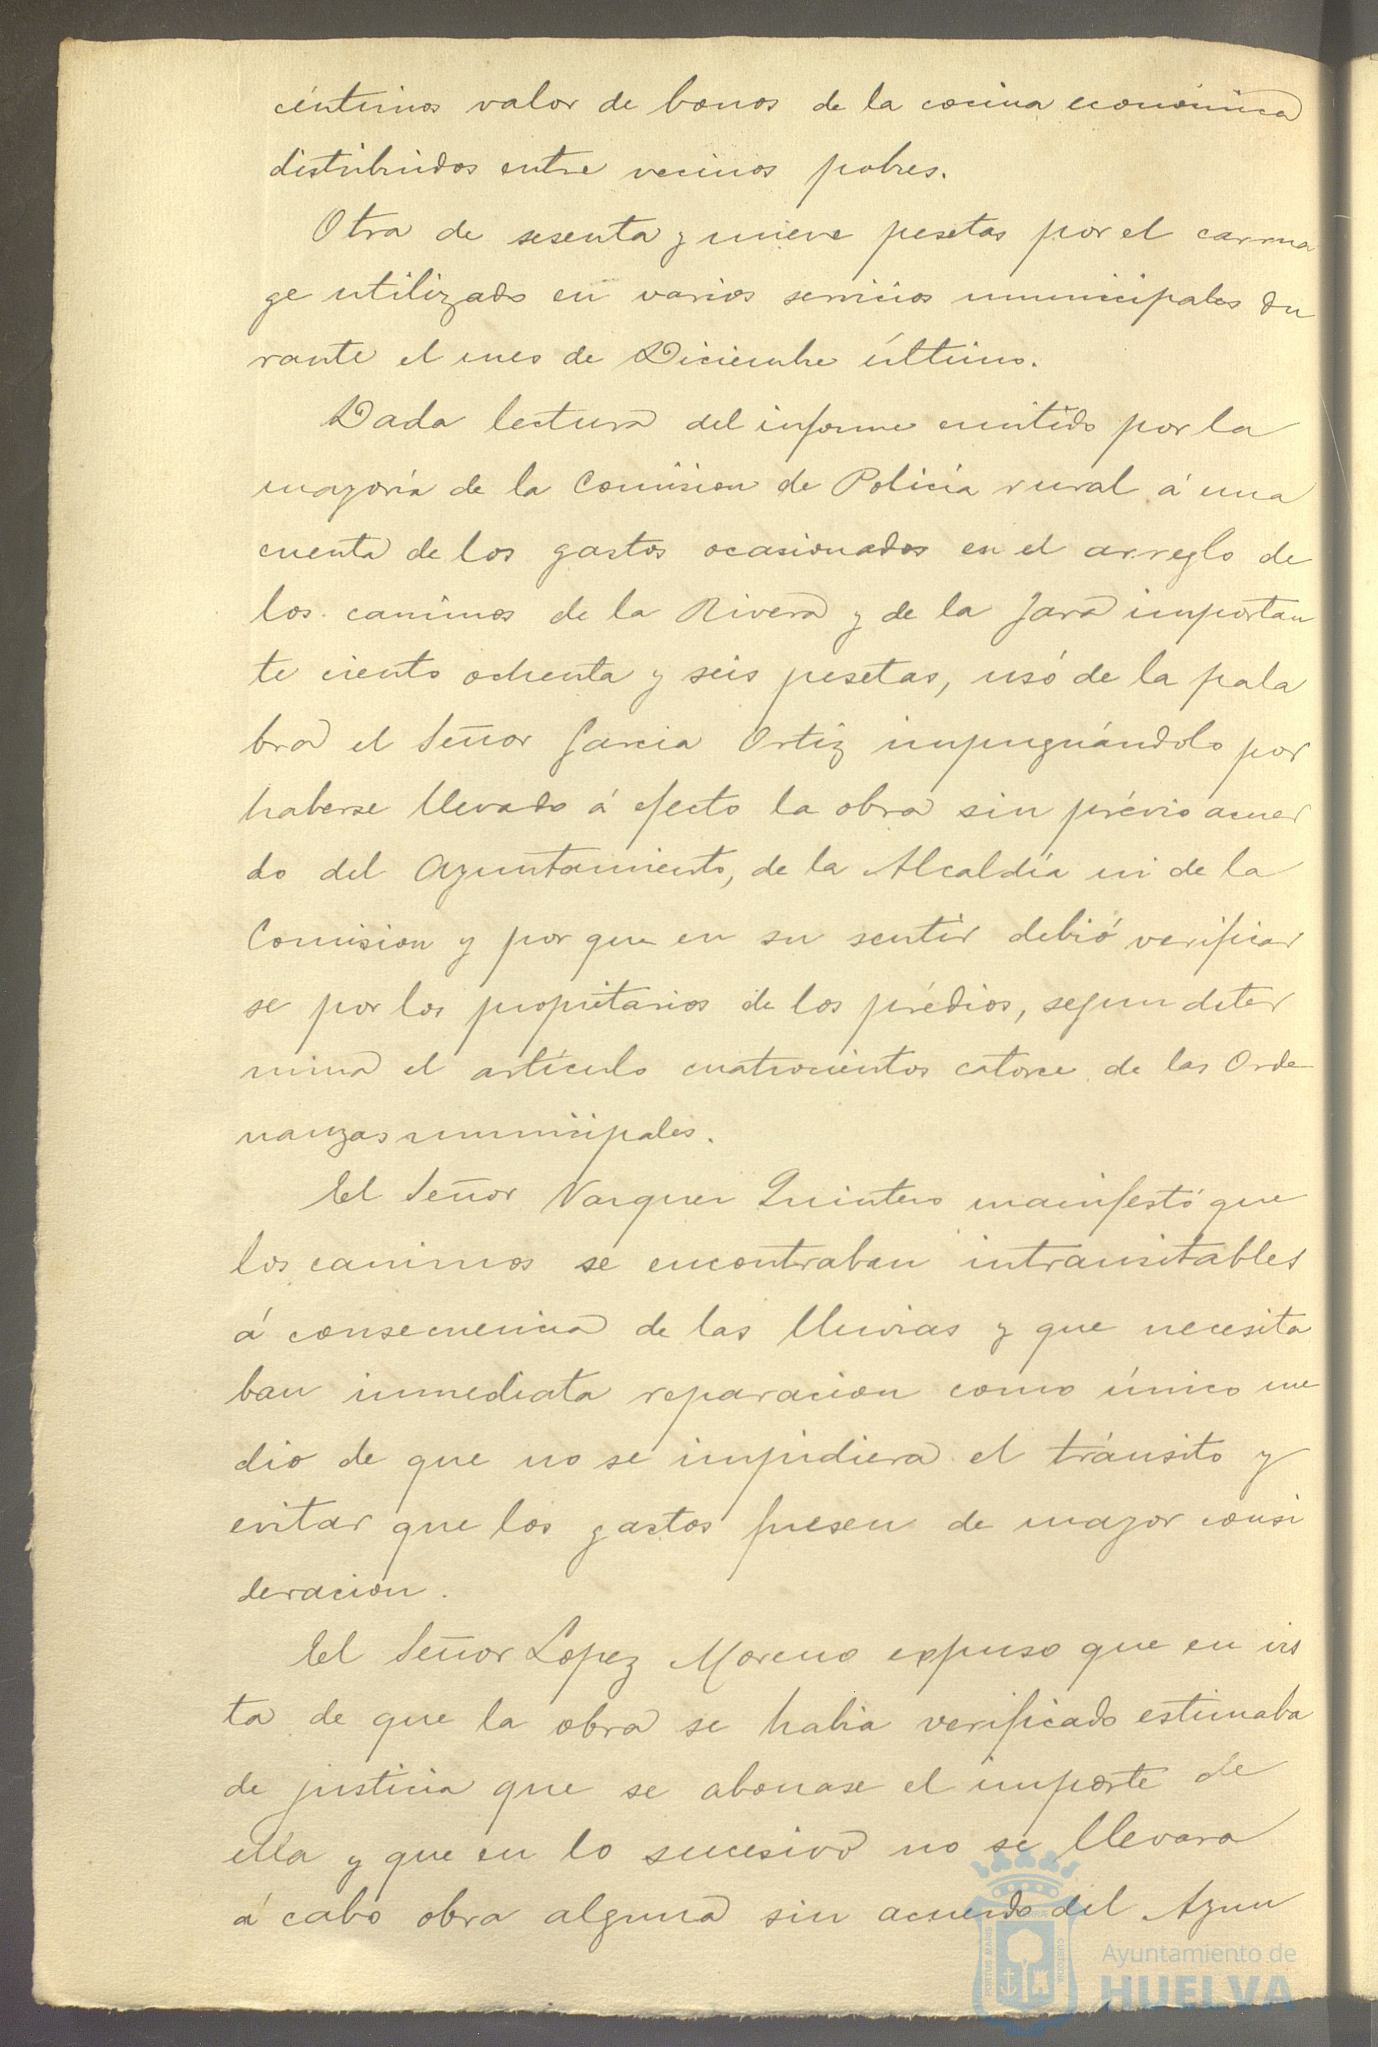 céntimos valor de bonos de la cocina económica
distribuidos entre vecinos pobres.
Otra de sesenta y nueve pesetas por el carrua
ge utilizado en varios servicios municipales du
rante el mes de Diciembre último.
Dada lectura del informe emitido por la
mayoría de la Comision de Policía rural á una
cuenta de los gastos ocasionados en el arreglo de
los caminos de la Rivera y de la Jara importan
te ciento ochenta y seis pesetas, usó de la pala
bra el Señor Garcia Ortiz impugnándolo por
haberse llevado á efecto la obra sin prévio acuer
do del Ayuntamiento, de la Alcaldía ni de la
Comision y por que en su sentir debió verificar
se por los propietarios de los prédios, segun deter
mina el artículo cuatrocientos catorce de las Orde
nanzas municipales.
El Señor Vazquez Quintero manifestó que
los caminos se encontraban intransitables
á consecuencia de las lluvias y que necesita
ban inmediata reparacion como único me
dio de que no se impidiera el tránsito y
evitar que los gastos fuesen de mayor consi
deracion.
El Señor Lopez Moreno expuso que en vis
ta de que la obra se habia verificado estimaba
de justicia que se abonase el importe de
ella y que en lo sucesivo no se llevara
á cabo obra alguna sin acuerdo del Ayun
Ayuntamiento de
HUELVA